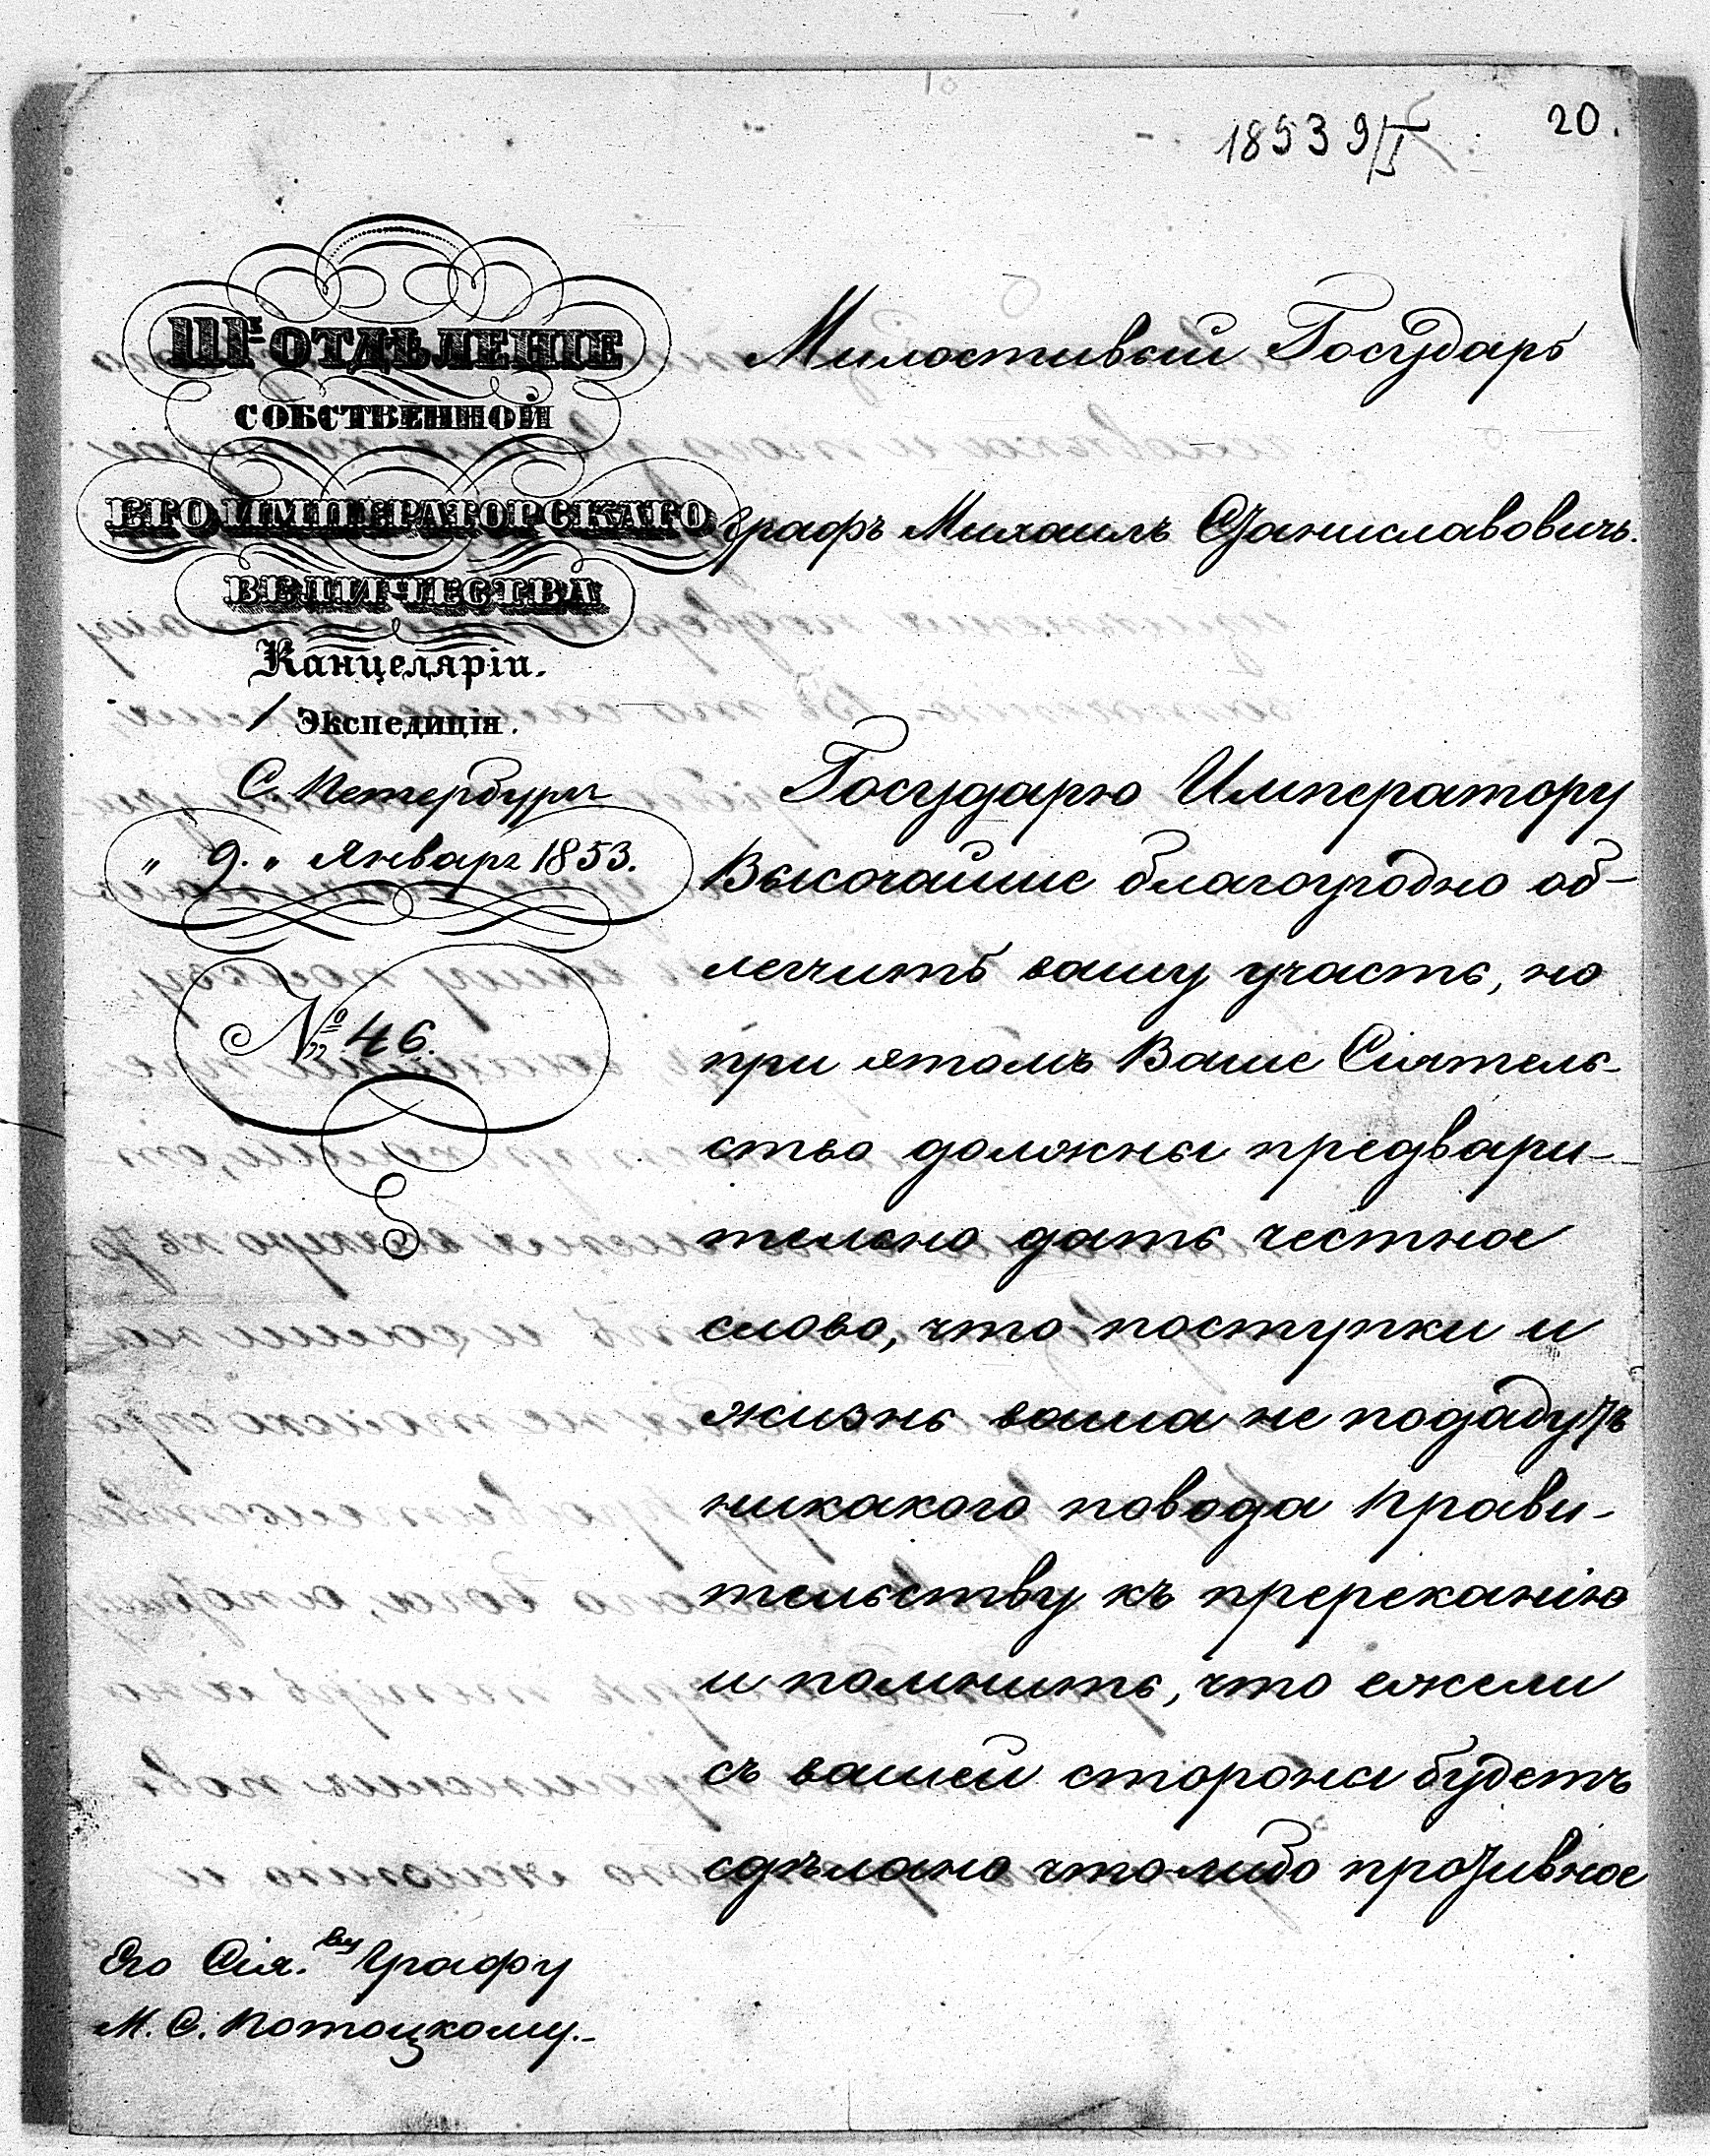 20.
1853 9/I
IIIе ОТДѢЛЕНІЕ
СОБСТВЕННОЙ
ЕГО ИМПЕРАТОРСКАГО
ВЕЛИЧЕСТВА
Канцеляріи.
1 Экспедиція.
С. Петербургъ
„ 9. „ Января 1853.
№ 46.
Милостивый Государь
Графъ Михаилъ Станиславовичъ.
Государю Императору
Высочайше благоугодно об-
легчить вашу участь, но
при этомъ Ваше Сіятель-
ство должны предвари-
тельно дать честное
слово, что поступки и
жизнь ваша не подадутъ
никакого повода прави-
тельству къ пререканію
и помнить, что ежели
съ вашей стороны будетъ
сдѣлано что либо противное
Его Сія.ву Графу
М. С. Потоцкому.-